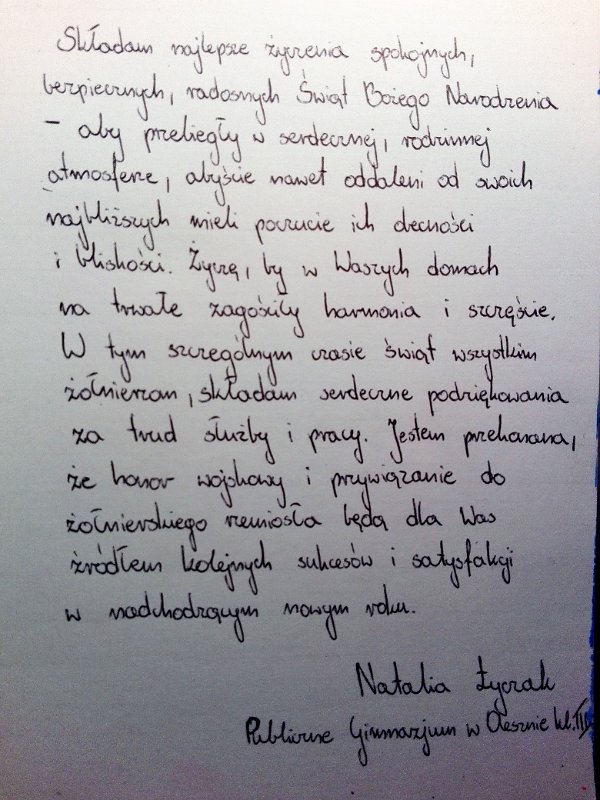 Składam najlepsze życzenia spokojnych,
bezpiecznych, radosnych Świąt Bożego Narodzenia
- aby przebiegły w serdecznej, rodzinnej
atmosferze, abyście nawet oddaleni od swoich
najbliższych mieli poczucie ich obecności
i bliskości. Życzę, by w Waszych domach
na trwałe zagościły harmonia i szczęście.
W tym szczególnym czasie świąt wszystkim
żołnierzom, składam serdeczne podziękowania
za trud służby i pracy. Jestem przekonana,
że honor wojskowy i przywiązanie do
żołnierskiego rzemiosła będą dla Was
źródłem kolejnych sukcesów i satysfakcji
w nadchodzącym nowym roku.
Natalia Łyczak
Publiczne Gimnazjum w Oleśnie kl. III